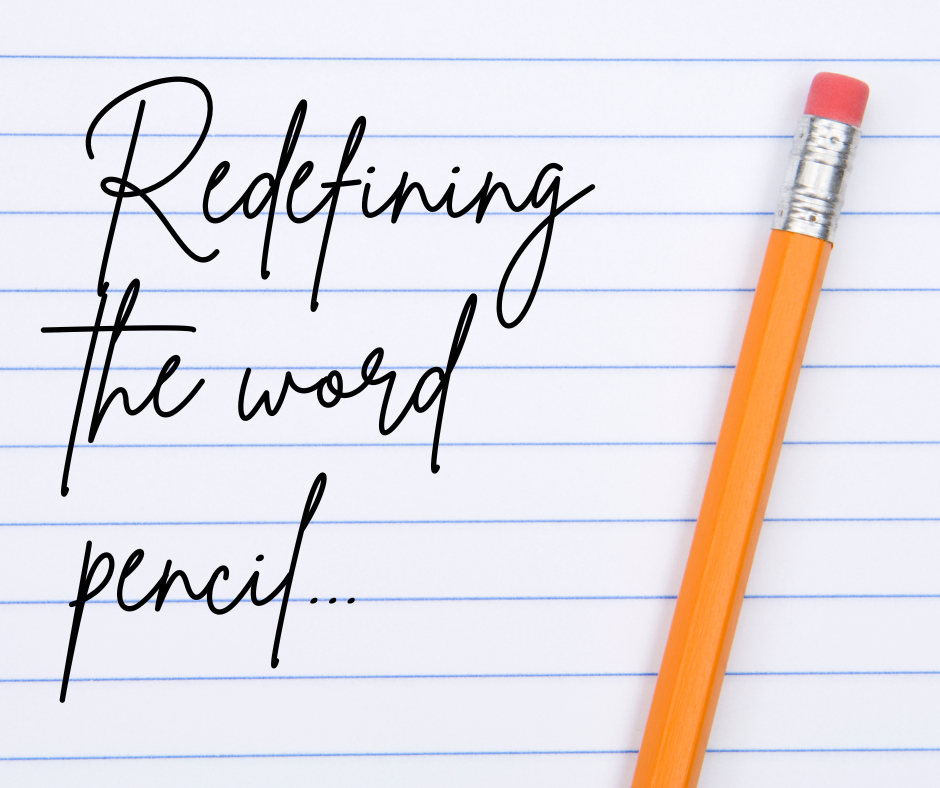 Redefining
the word
pencil...